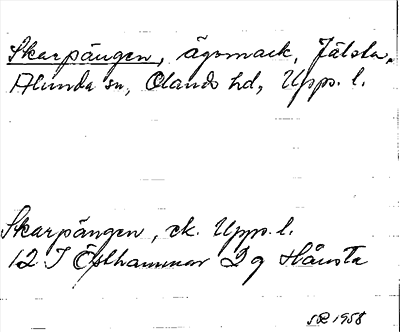 Skarpängen, ägomark, Jälsta,
Alunda sn, Olands hd, Upps. l.
Skarpängen, ek. Upps. l.
12 I Östhammar 2 g Hånsta
1958